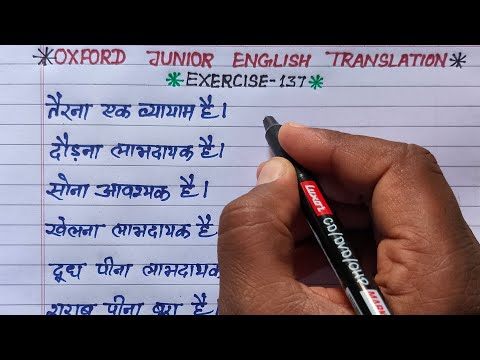 *OXFORD JUNIOR ENGLISH TRANSLATION*
*EXERCISE-137*
तैरना एक व्यायाम है।
दौड़ना लाभदायक है।
सोना आवश्यक है।
खेलना लाभदायक है
दूध पीना लाभदायक
शराब पीना बुरा है।
Luxor CD/DVD/OHP MARK